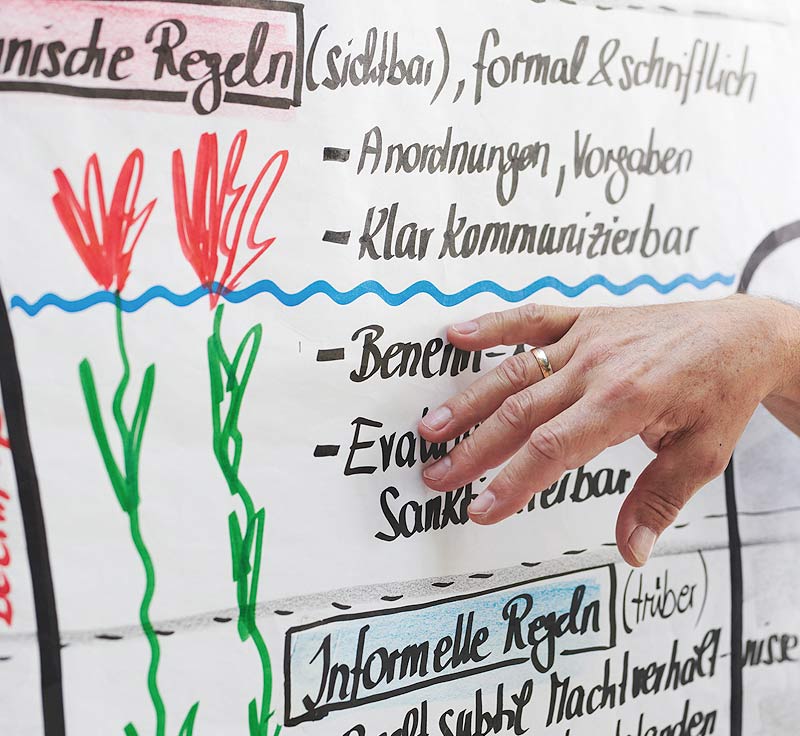 nische Regeln (sichtbar), formal & schriftlich
- Anordnungen, Vorgaben
- Klar kommunizierbar
- Benenn-
- Evalu
Sankt erbar
Informelle Regeln (trüber)
subtil Machtverhält-nisse